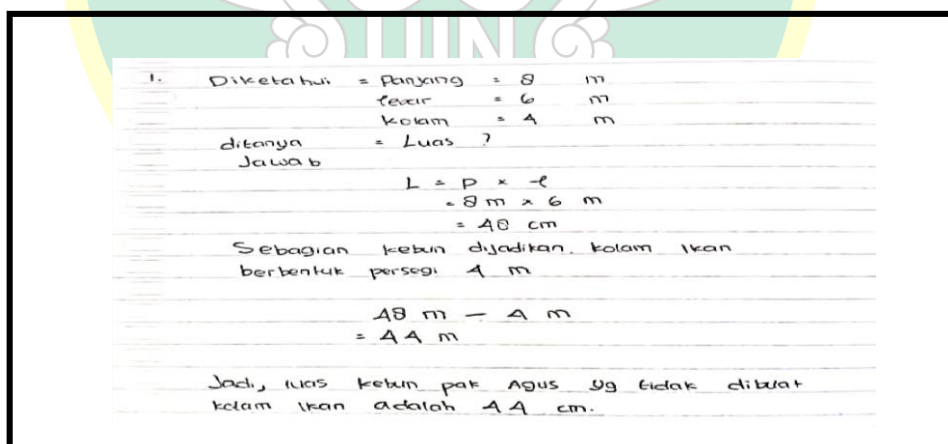 UIN
1. Diketahui = Panjang = 8 m
lebar = 6 m
kolam = 4 m
ditanya = Luas ?
Jawab
L = p × l
= 8 m × 6 m
= 48 cm
Sebagian kebun dijadikan. kolam ikan
berbentuk persegi 4 m
48 m — 4 m
= 44 m
Jadi, luas kebun pak Agus yg tidak dibuat
kolam ikan adalah 44 cm.